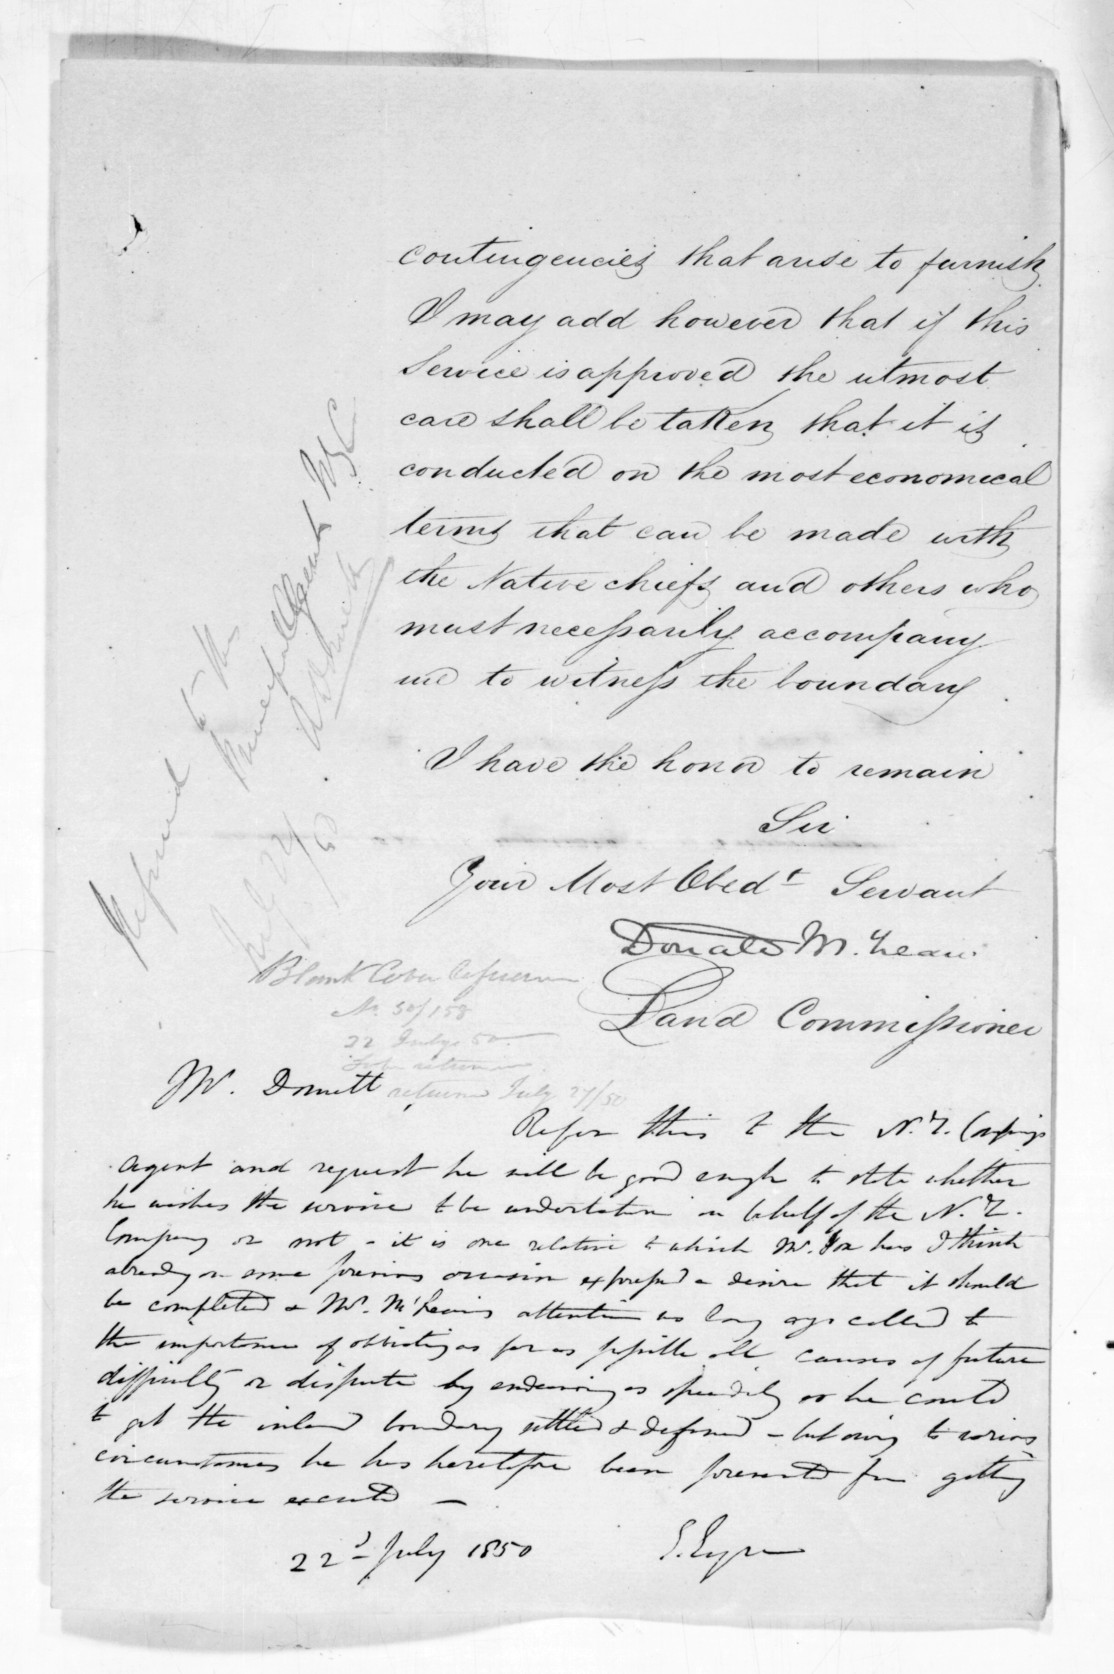 contingencies that arise to furnish
I may add however that if this
Service is approved the utmost
care shall be taken that it is
conducted on the most economical
terms that can be made with
the Native chiefs and others who
must necessarily accompany
me to witness the boundary
I have the honor to remain
Sir
Your Most Obedt Servant
Donald McLean
Land Commissioner
Referred to the
Principal Agent NZC
July 22/50
Blank Cover
No. 50/158
22 July 50
returned July 27/50
Mr. Domett
Refer this to the N.Z. Companys
Agent and request he will be good enough to state whether
he wishes the service to be undertaken on behalf of the N.Z.
Company or not - it is one relative to which Mr. Fox has I think
already on some previous occasion expressed a desire that it should
be completed & Mr. McLean's attention was long ago called to
the importance of obviating as far as possible all causes of future
difficulty or dispute by endeavoring as speedily as he could
to get the inland boundary settled & defined - but owing to various
circumstances he has heretofore been prevented from getting
the service executed -
22d July 1850
E. Eyre